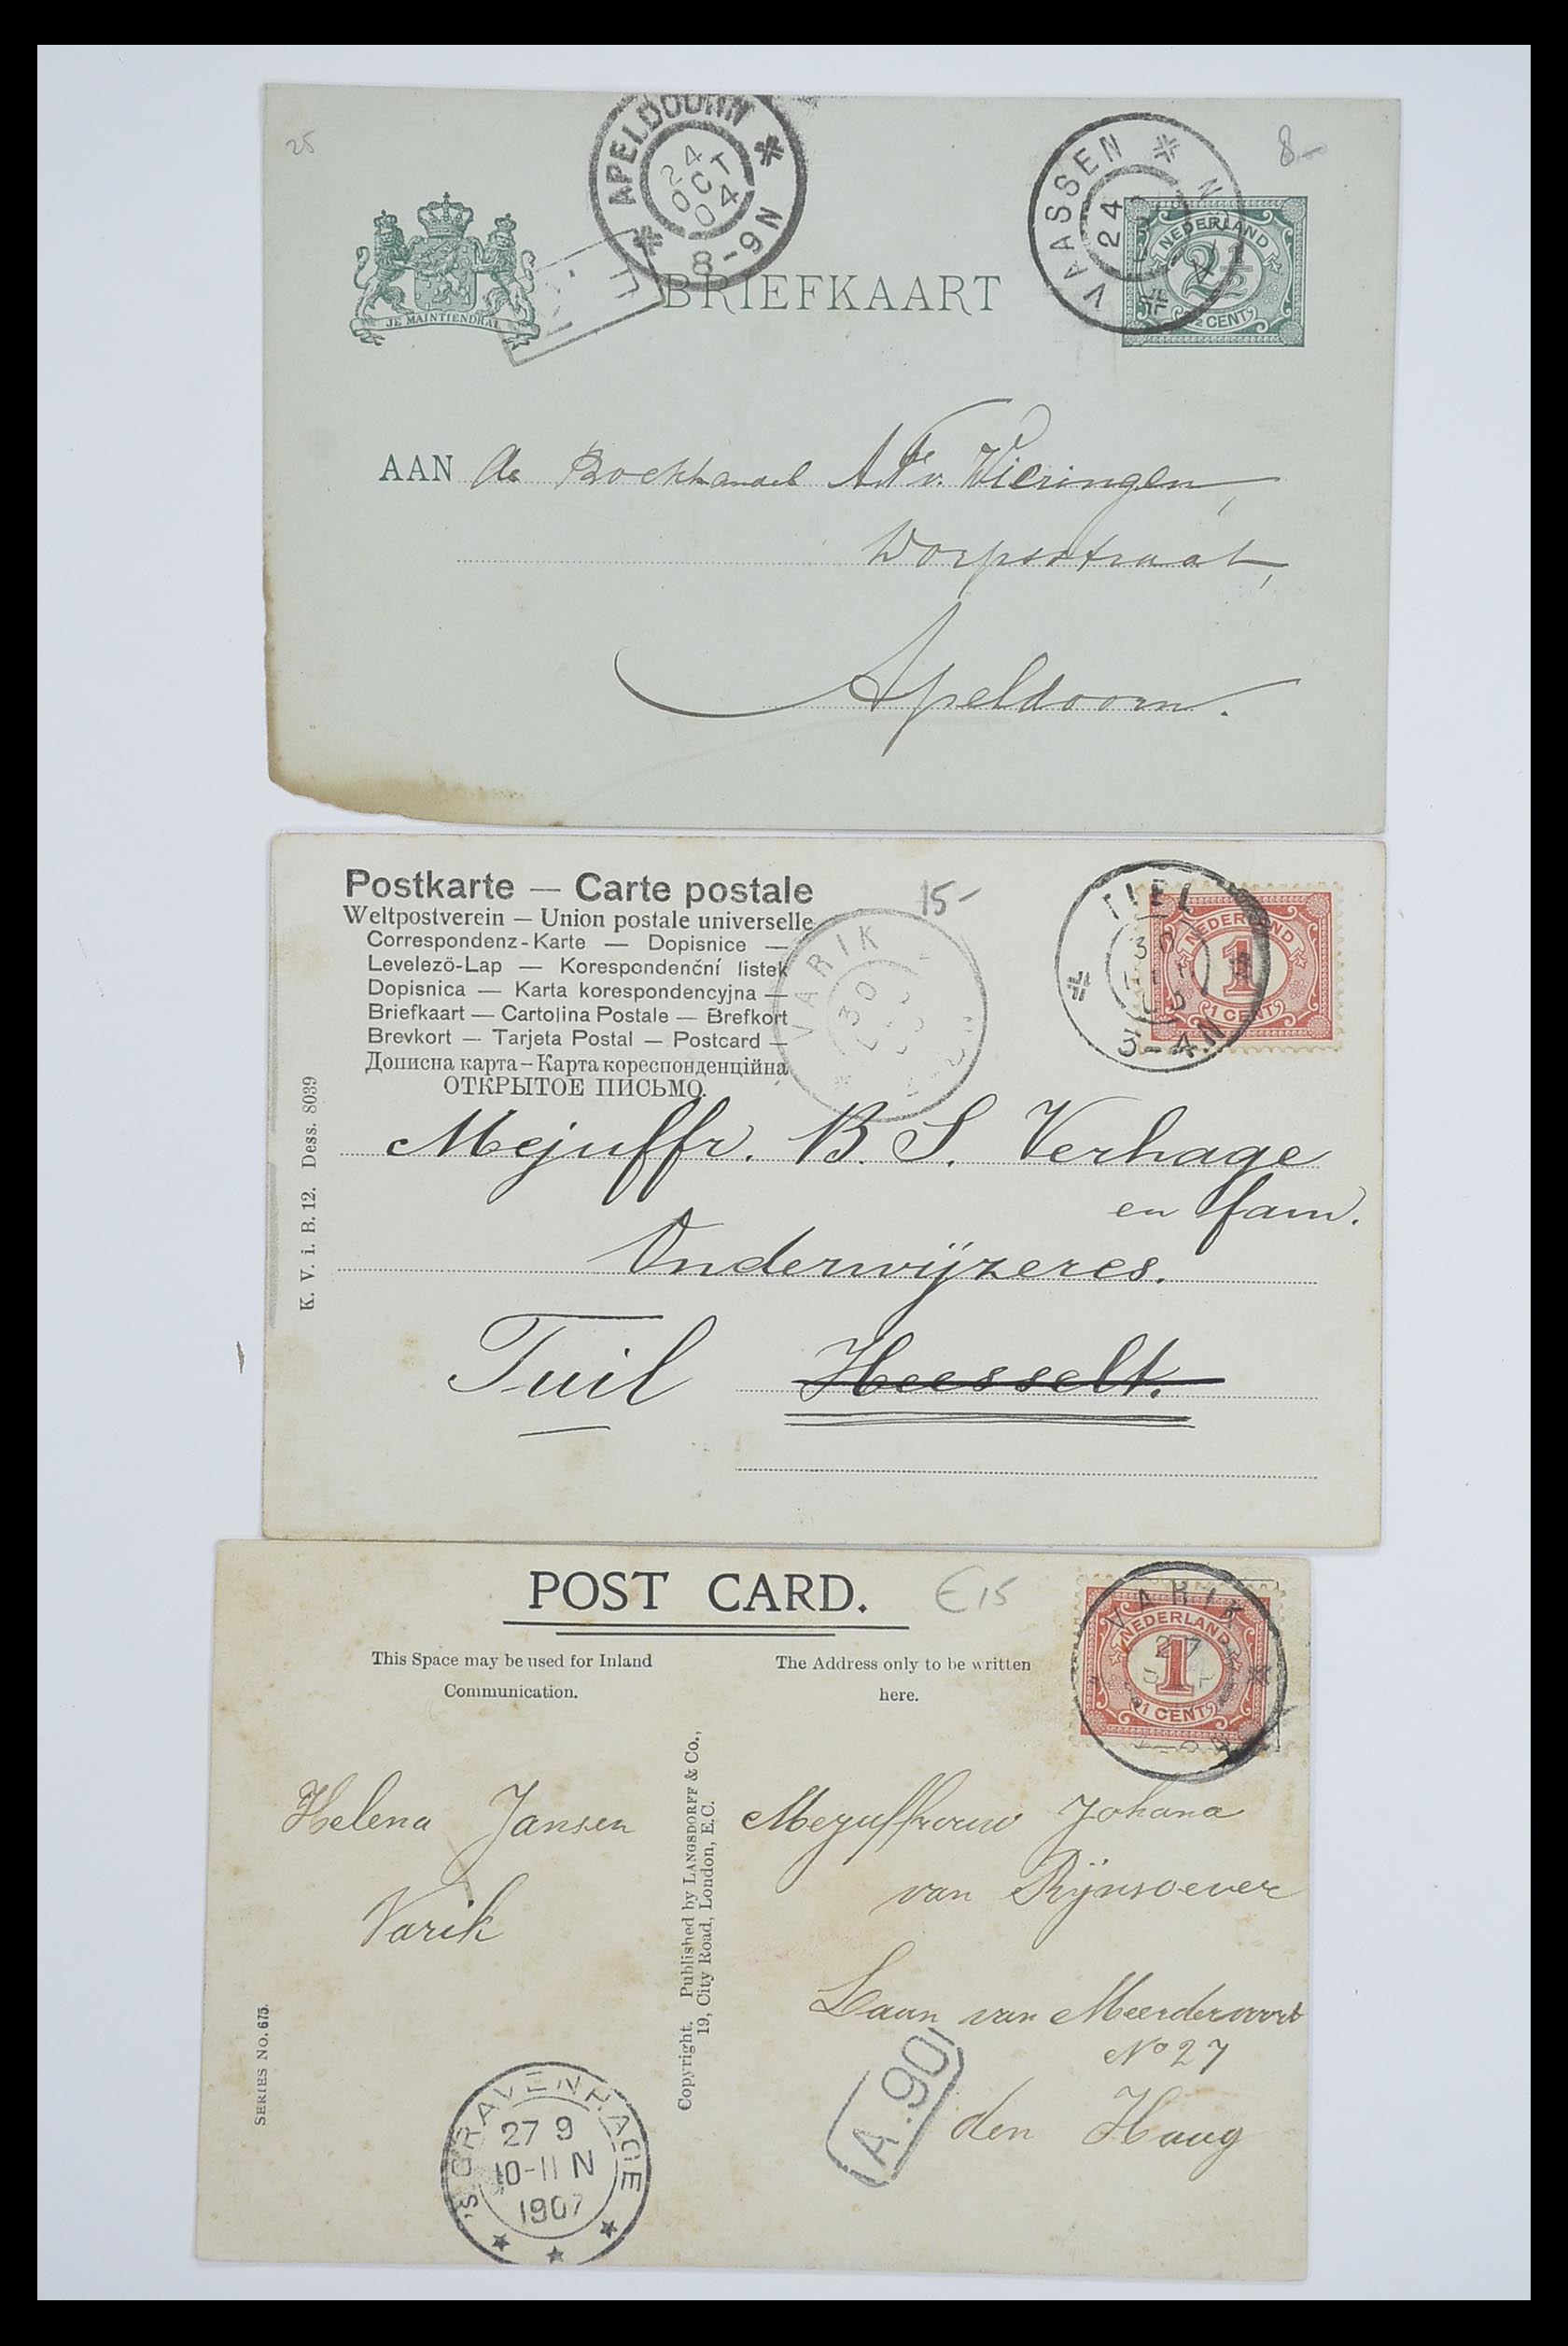 25
8-
APELDOORN
24
OCT
04
8-9N
VAASSEN
24
N
NEDERLAND
2½
CENT
JE MAINTIENDRAI
BRIEFKAART
AAN de Boekhandel A. F. v. Wieringen,
Worpsstraat,
Apeldoorn.
Postkarte — Carte postale
Weltpostverein — Union postale universelle
Correspondenz-Karte — Dopisnice —
Levelezö-Lap — Korespondenční listek
Dopisnica — Karta korespondencyjna —
Briefkaart — Cartolina Postale — Brefkort
Brevkort — Tarjeta Postal — Postcard —
Дописна карта – Карта кореспонденційна
ОТКРЫТОЕ ПИСЬМО.
15-
VARIK
30
TIEL
30
3-4N
NEDERLAND
1
1 CENT
K. V. i. B. 12. Dess. 8039
Mejuffr. B. S. Verhage
en fam.
Onderwijzeres.
Tuil Heesselt.
POST CARD.
E15
VARIK
27
NEDERLAND
1
1 CENT
This Space may be used for Inland
Communication.
The Address only to be written
here.
Helena Jansen
Varik
Copyright. Published by LANGSDORFF & Co.,
19, City Road, London, E.C.
Mejuffrouw Johana
van Rijnsoever
Laan van Meerdervoort
No 27
den Haag
A.90
SERIES NO. 675.
'SGRAVENHAGE
27 9
10-11 N
1907